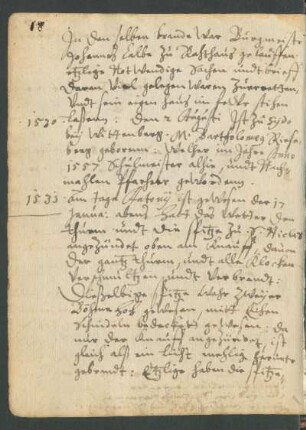 18
In den selben brande War Bürgmeister
Johannes Calbe Zu Rathaus gelauffen
etzliche Notwendige Sachen undt brieff
daran Viel gelegen Waren Zuerretten
Undt sein eigen haus im fewer stehen
lassen: Den 2 Augusti Ist zu
1530 bey Wittenberg M. Bartholomeg
berg geboren. Welcher im Jahre
1557 Schulmeister alhie undt Nach-
mahlen Pfarherr geworden
1533 am tage Antonij ist gewesen der 17
Janua: abens hatt das Wetter den
thurm undt die Spitze Zu S.
angezündet oben am Knauff davon
der gantz thurm, undt alle Klocken
verschmeltzen undt Verbrandt:
Dieselbige spitze Wahr Zweyer
hoch gewesen, mitt Eichen
Schindeln bedecket gewesen: da
nur der Knauff angezündet, ist
gleich alss ein licht mehlig herunter
gebrendt: Etzlige haben die spitze